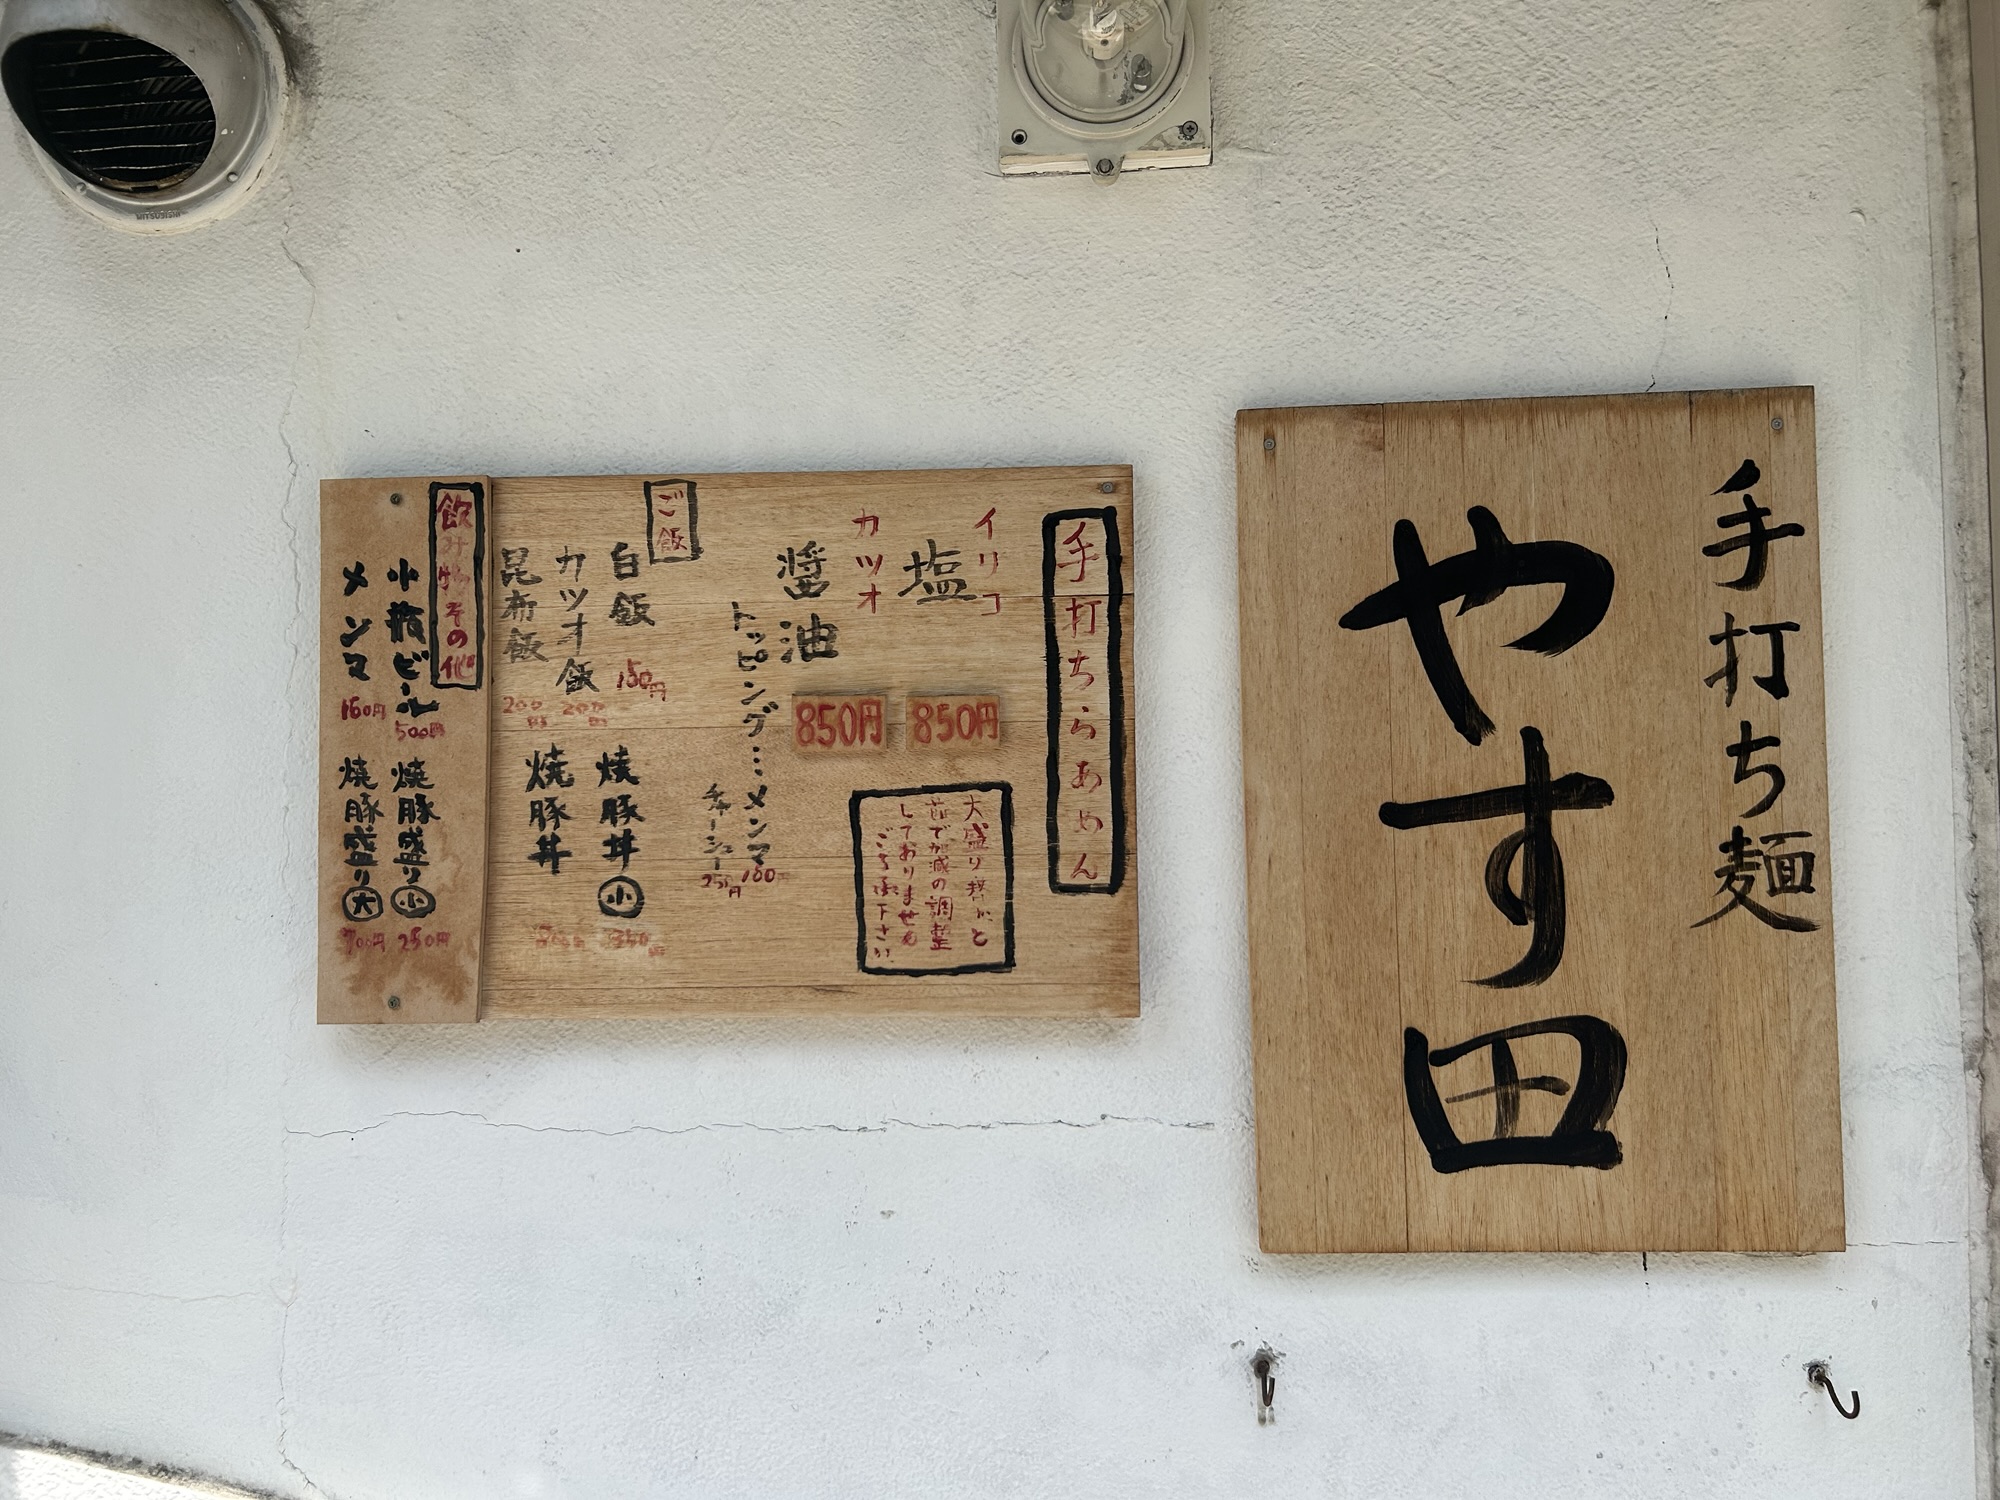 手打ち麺
やす田
手打ちらぁめん
イリコ
塩
850円
カツオ
醤油
850円
大盛り
茹で加減の調整
しておりませぬ
ご了承下さい
トッピング…メンマ
チャーシュー
ご飯
白飯 150円
カツオ飯 200円
昆布飯 200円
焼豚丼 小
焼豚丼
飲み物その他
小瓶ビール 500円
メンマ 160円
焼豚盛り 小 250円
焼豚盛り 大 700円
MITSUBISHI